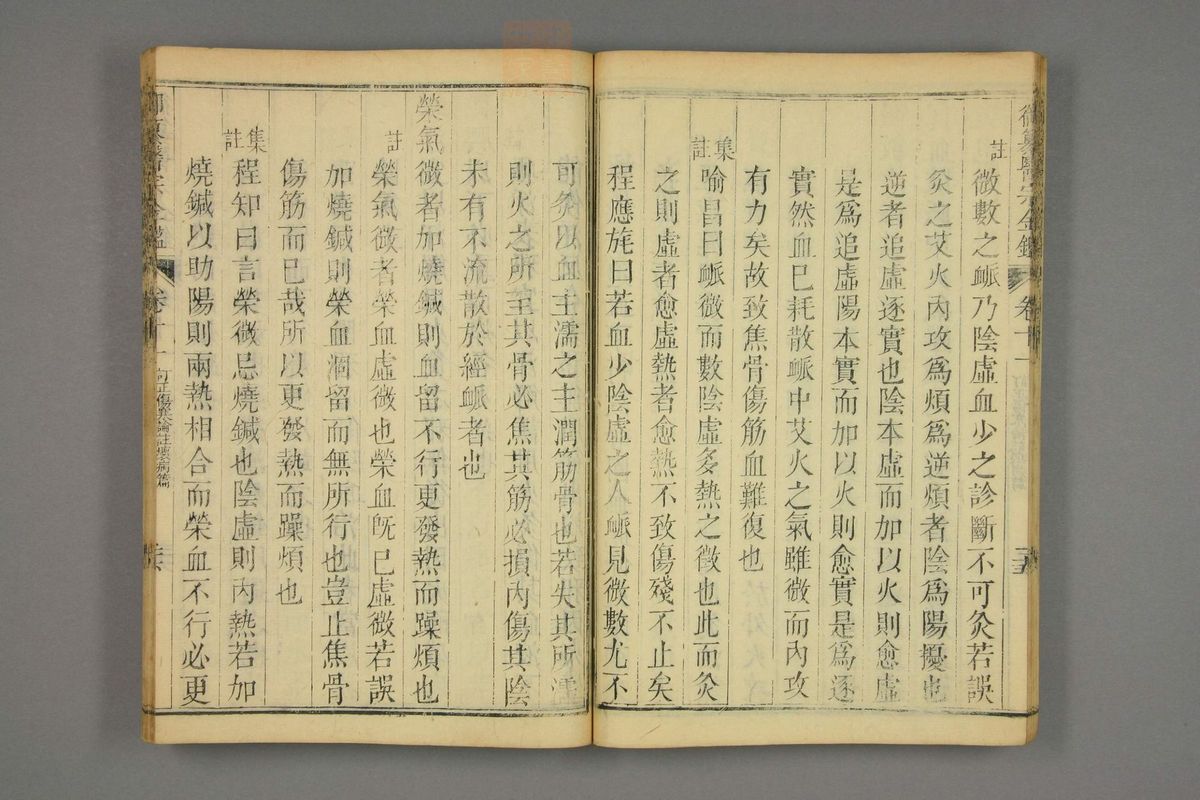 御纂醫宗金鑑 卷十一
註
微數之脈乃陰虛血少之診斷不可灸若誤
灸之艾火內攻爲煩爲逆煩者陰爲陽擾也
逆者追虛逐實也陰本虛而加以火則愈虛
是爲追虛陽本實而加以火則愈實是爲逐
實然血已耗散脈中艾火之氣雖微而內攻
有力矣故致焦骨傷筋血難復也
集註
喻昌曰脈微而數陰虛多熱之徵也此而灸
之則虛者愈虛熱者愈熱不致傷殘不止矣
程應旄曰若血少陰虛之人脈見微數尤不
可灸以血主濡之主潤筋骨也若失其所濡
則火之所至其骨必焦其筋必損內傷其陰
未有不流散於經脈者也
榮氣微者加燒鍼則血留不行更發熱而躁煩也
註
榮氣微者榮血虛微也榮血既已虛微若誤
加燒鍼則榮血涸留而無所行也豈止焦骨
傷筋而已哉所以更發熱而躁煩也
集註
程知曰言榮微忌燒鍼也陰虛則內熱若加
燒鍼以助陽則兩熱相合而榮血不行必更
卷十一 訂正傷寒論註壞病篇